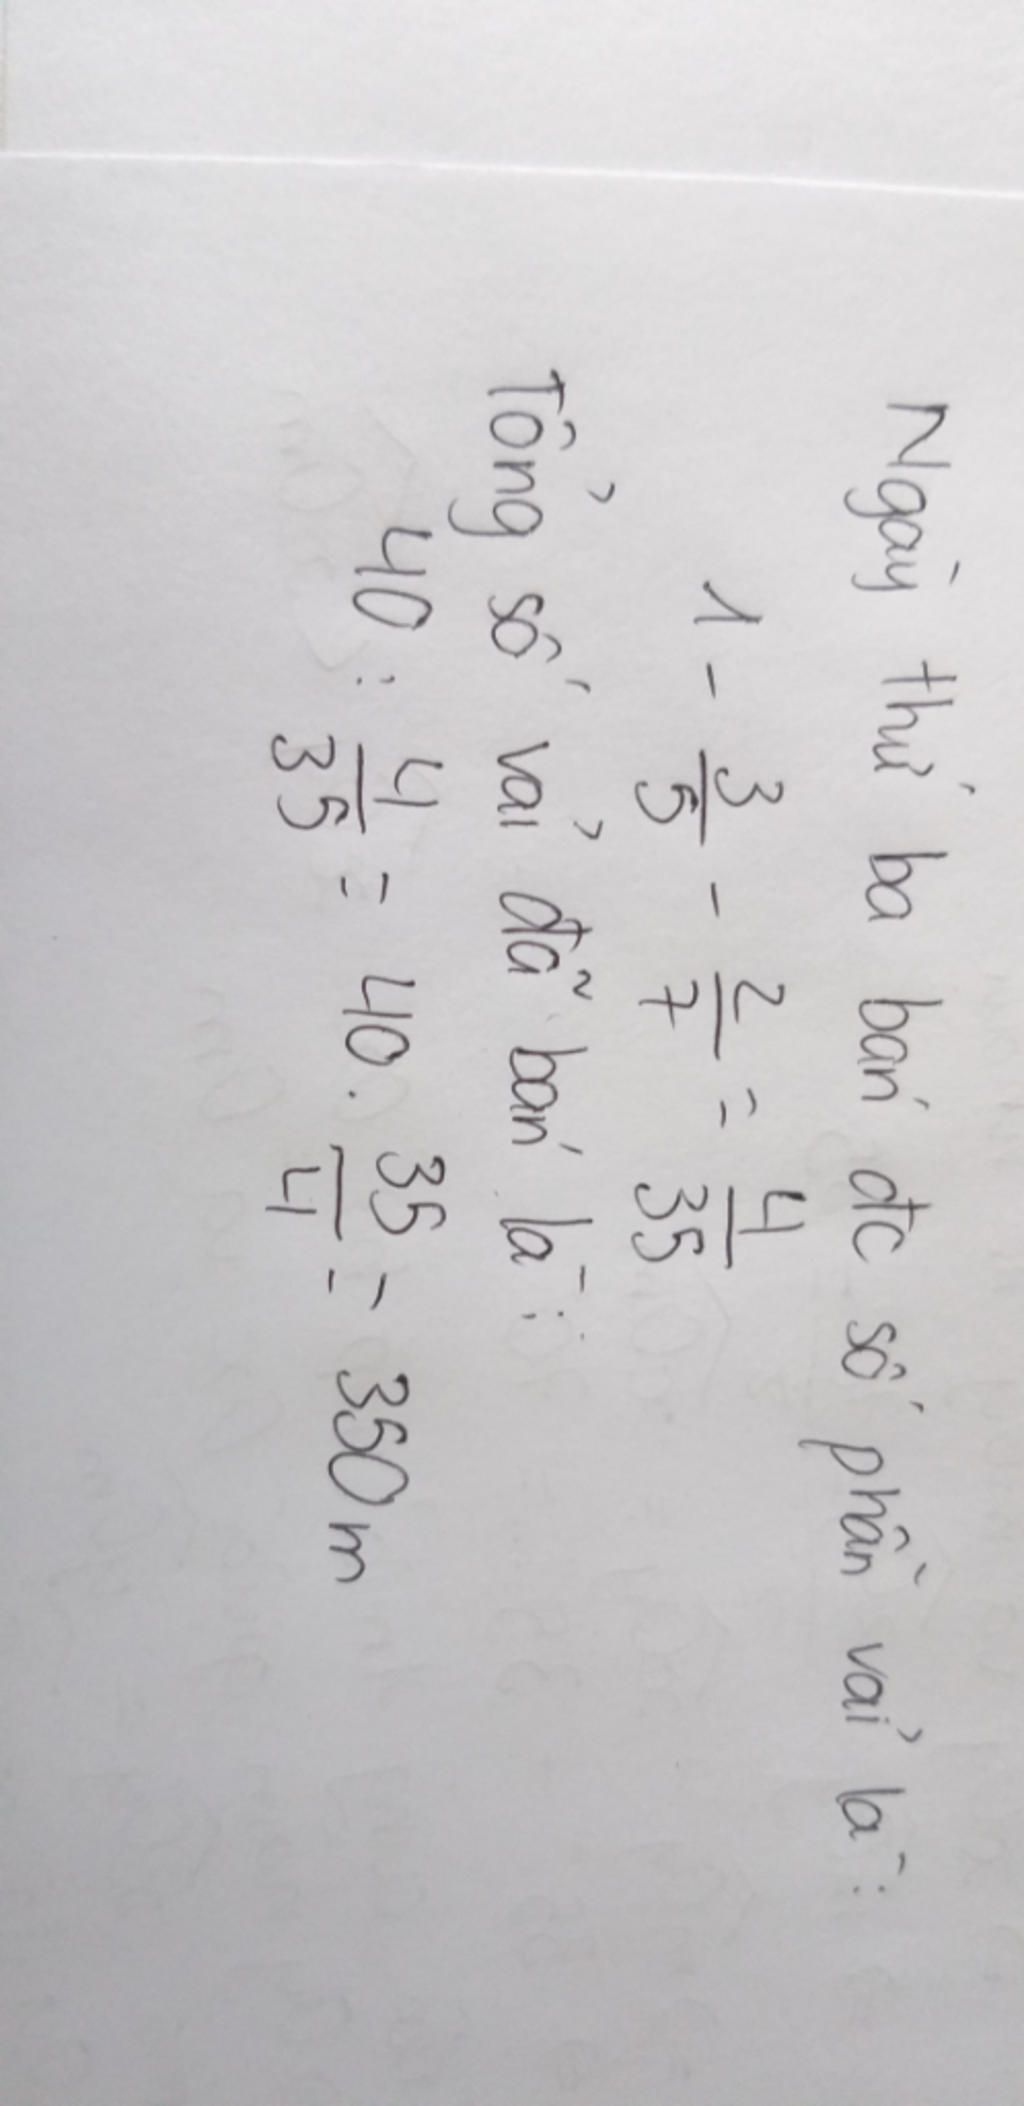 Ngày thứ ba bán đc số phần vải là:
1 - 3/5 - 2/7 = 4/35
Tổng số vải đã bán là:
40 : 4/35 = 40 . 35/4 = 350 m